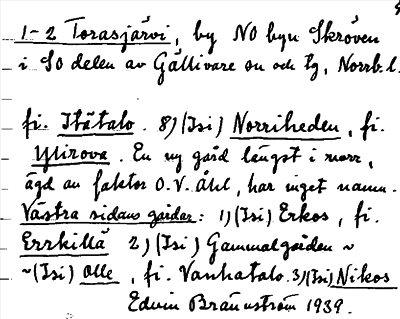 1-2 Torasjärvi, by NO byn Skröven
i SO delen av Gällivare sn och tg, Norrb.l.
fi. Itätalo. 8) (Isi) Norriheden, fi.
Ylirova. En ny gård längst i norr,
ägd av faktor O.V. Åhl, har inget namn.
Västra sidans gårdar: 1) (Isi) Erkos, fi.
Errkillä 2) (Isi) Gammalgården ~
~ (Isi) Olle, fi. Vanhatalo. 3) (Isi) Nikos
Edvin Brännström 1939.